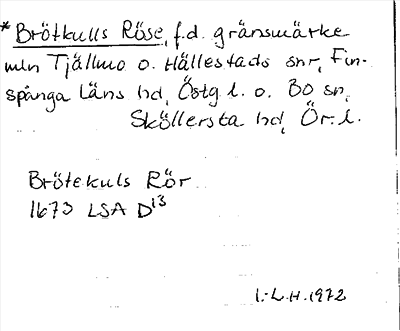 * Brötkulls Röse, f.d. gränsmärke
mln Tjällmo o. Hällestads snr, Fin-
spånga läns hd, Östg l. o. Bo sn,
Sköllersta hd, Ör. l.
Brötekuls Rör
1673 LSA D13
I.-L.H. 1972